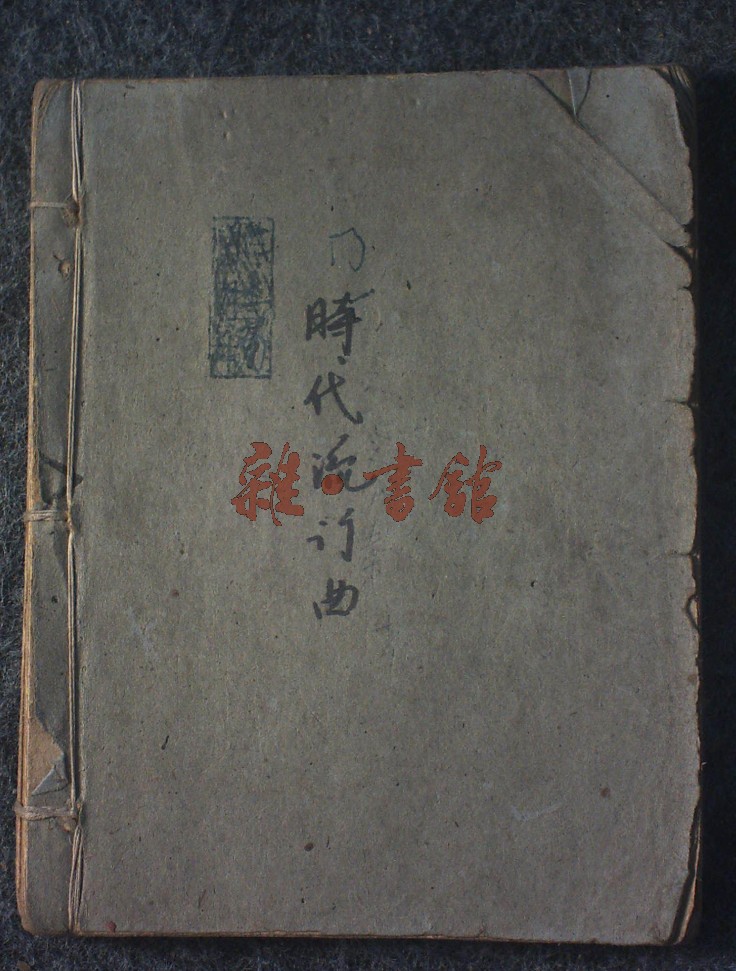 時代流行曲
雜·書館